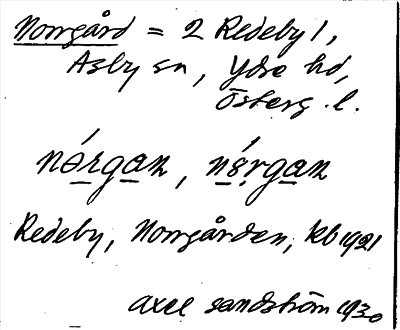 Norrgård = 2 Redeby 1,
Asby sn, Ydre hd,
Österg. l.
nǝ́rgan, nɞ́rgan
Redeby, Norrgården, kb 1921
Axel Sandström 1930